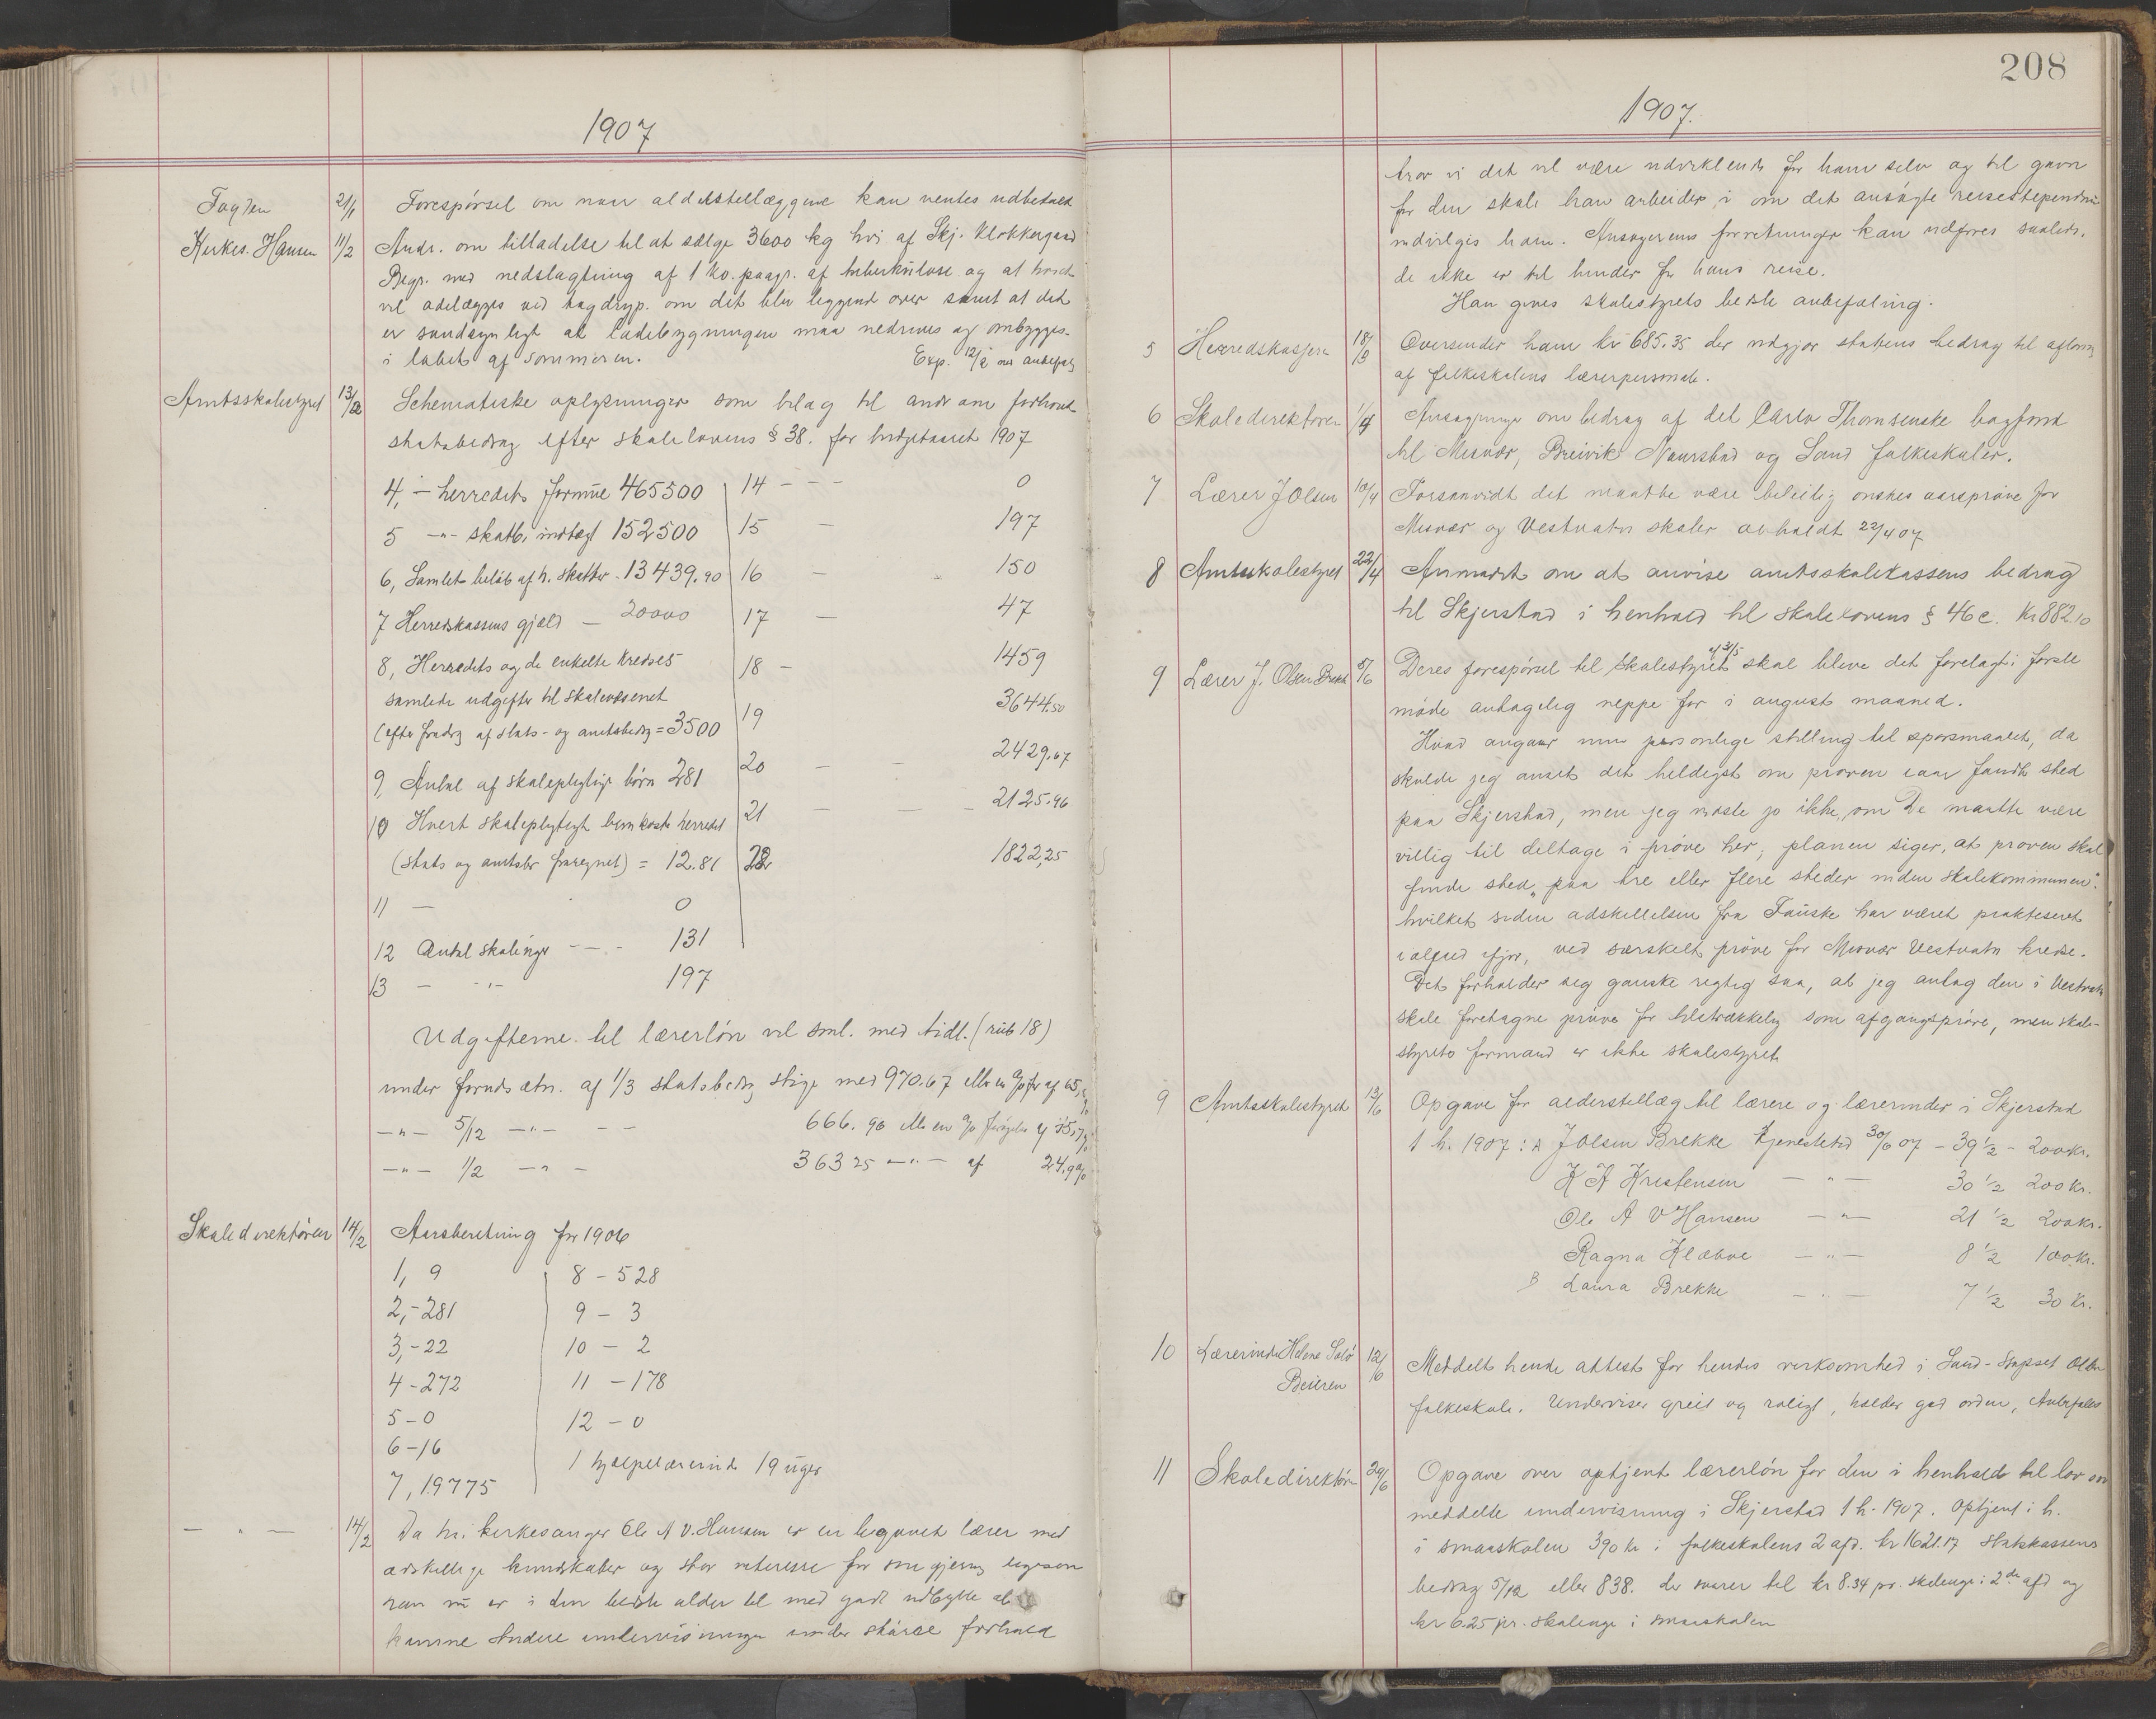 1907
Fogden 21/1 Forespörsel om naar alderstillæggene kan ventes udbetalt
Kirkes. Hansen 11/2 Andr. om tilladelse til at sælge 3600 kg höi af Skj. Klokkergaard
Begr. med nedslagtning af 1 ko. paagr. af tuberkulose og at
vil ödelægges ved tagdryp. om det blir liggende over samt at det
er sandsynligt at ladebygningen maa nedrives og ombygges
i löbet af sommeren. Exp. 12/2 med anbefal
Amtsskolestyret 13/2 Schematiske oplysninger som bilag til andr om forhöiet
statsbidrag efter skolelovens § 38. for budgetaaret 1907
4, - herredets formue 465500 14 - - - 0
5 -"- skatb. indtægt 152500 15 - 197
6, Samlet beløb af h. skatter - 13439.90 16 - 150
7 Herredskassens gjæld - 20000 17 - 47
8, Herredets og de enkelte kredses 18 - 1459
samlede udgifter til skolevæsenet
(efter fradrag af stats- og amtsbidrag = 3500 19 3644.50
9, Antal af skolepligtige börn 281 20 - - 2429.67
10 Hvert skolepligtigt barn koster herredet 21 - - - 2125.96
(stats og amtsbr fraregnet) = 12.81 22 1822,25
11 - 0
12 Antal skoleuger - - - 131
13 - -"- 197
Udgifterne til lærerlön vil sml. med tidl. (rub 18)
under foruds ætn. af 1/3 statsbidrag stige med 970.67 eller en % før af 65,
-"- 5/12 -"- - - 666.96 eller en % forögelse af
-"- 1/2 -"- - 363 25 -"- af 24.9%
Skoledirektören 14/2 Aarsberetning for 1906
1, 9 8 - 528
2, - 281 9 - 3
3, - 22 10 - 2
4 - 272 11 - 178
5 - 0 12 - 0
6 - 16 1 hjælpelærerinde 19 uger
7, 19775
- " - 14/2 Da hr. kirkesanger Ole A V. Hansen er en begavet lærer med
adskillige kundskaber og stor interesse for sin gjerning ligesom
han nu er i den bedste alder til med godt udbytte at
kunne studere undervisningen under större forhold
208
1907.
tror vi det vil være udviklende for ham selv og til gavn
for den skole han arbeider i om det ansögte reisestipendium
indvilges ham. Ansögerens forretninger kan udföres saaledes,
de ikke er til hinder for hans reise.
Han gives skolestyrets bedste anbefaling.
5 Herredskasserer 18/3 Oversender ham kr 685.35 der udgjör statens bedrag til aflönn
af folkeskolens lærerpersonale.
6 Skoledirektören 1/4 Ansögninger om bedrag af det Carlo Thomsenske bogfond
til Misvær, Breivik Naurstad og Sand folkeskoler.
7 Lærer J Olsen 10/4 Forsaavidt det maatte være beleilig önskes aarspröve for
Misvær og Vestvatn skoler avholdt 22/4 07
8 Amtsskolestyret 22/4 Anmodet om at anvise amtsskolekassens bedrag
til Skjerstad i henhold til skolelovens § 46 c. Kr 882.10
9 Lærer J. Olsen Brekke 5/6 Deres forespörsel til skolestyret af 31/5 skal blive det forelagt i förste
möde antagelig neppe för i august maaned.
Hvad angaar min personlige stilling til spörsmaalet, da
skulde jeg anset det heldigst om pröven iaar fandt sted
paa Skjerstad, men jeg vidste jo ikke, om De maatte være
villig til deltage i pröve her; planen siger, at pröven skal
finde sted „paa tre eller flere steder inden skolekommunen“.
hvilket siden adskillelsen fra Fauske har været prakteseret
ialfald ifjor, ved særskelt pröve for Misvær Vestvatn kredse.
Det forholder seg ganske rigtig saa, at jeg antog den i Vestvatn
skole foretagne pröve for tilstrækkelig som afgangspröve, men skole-
styrets formand er ikke skolestyret
9 Amtsskolestyret 13/6 Opgave for alderstillæg til lærere og lærerinder i Skjerstad
1 h. 1907: A J Olsen Brekke tjenestetid 30/6 07 - 39 1/2 - 200kr.
K A Kristensen - " - 30 1/2 200 kr.
Ole A V Hansen - " - 21 1/2 200kr.
Ragna Klæboe - " - 8 1/2 100kr.
B Laura Brekke - " - 7 1/2 30 kr.
10 Lærerinde Helene Solö 12/6 Meddelt hende attest for hendes virksomhed i Sand-
Beieren
folkeskole. Underviser greit og roligt, holder god orden, Anbefales
11 Skoledirektör 29/6 Opgave over optjent lærerlön for den i henhold til lov om
meddelte undervisning i Skjerstad 1 h. 1907. Optjent i h.
i smaaskolen 390 kr i folkeskolens 2 afd. kr 1621.17 Statskassens
bedrag 5/12 eller 838. der svarer til kr 8.34 pr. skoleuge i 2de afd og
kr 6.25 pr. skoleuge i smaaskolen